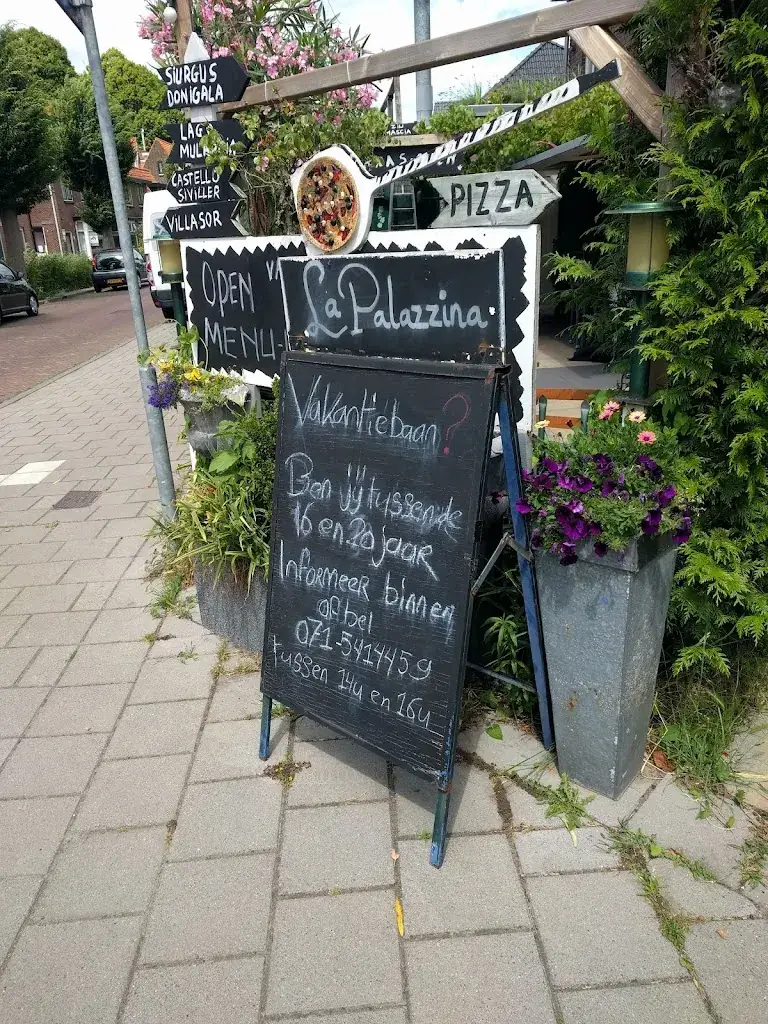 SIURGUS
DONIGALA
LAGO
CASTELLO
SIVILLER
VILLASOR
PIZZA
OPEN
MENU
La Palazzina
Vakantiebaan?
Ben jij tussen de
16 en 20 jaar
Informeer binnen
of bel
071-5414459
tussen 14u en 16u